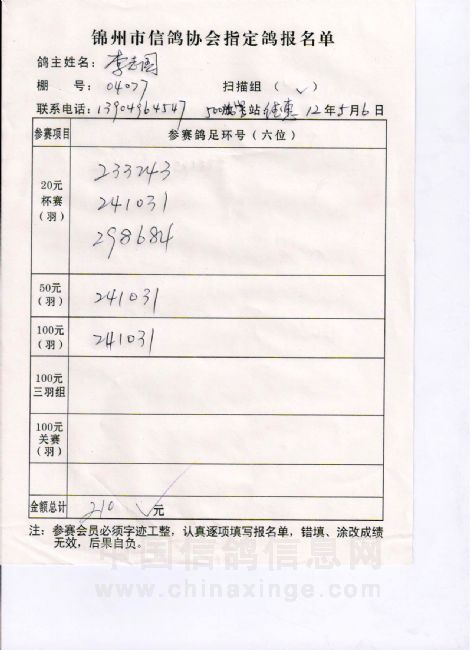 锦州市信鸽协会指定鸽报名单
鸽主姓名：李志国
棚 号：04077 扫描组（ ✓ ）
联系电话：13904964547 500 站 12年5月6日
参赛项目 参赛鸽足环号（六位）
20元
杯赛
（羽）
233243
241031
298684
50元
（羽）
241031
100元
（羽）
241031
100元
三羽组
100元
关赛
（羽）
金额总计 210 元
注：参赛会员必须字迹工整，认真逐项填写报名单，错填、涂改成绩
无效，后果自负。
中国信鸽信息网
www.chinaxinge.com